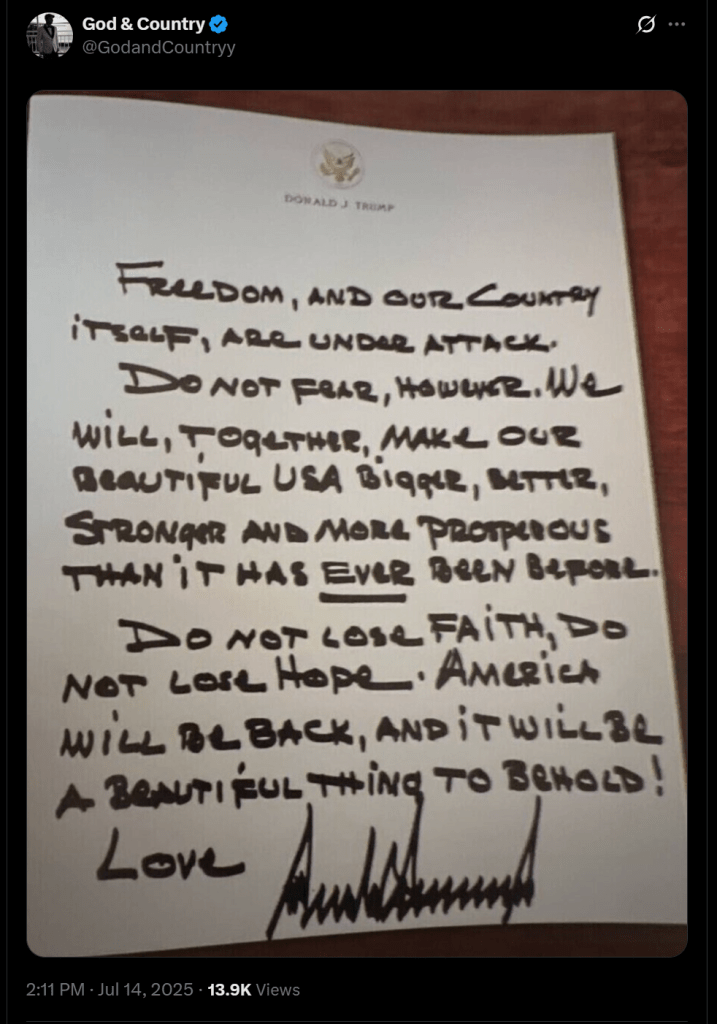 God & Country
@GodandCountryy
DONALD J. TRUMP
FREEDOM, AND OUR COUNTRY
ITSELF, ARE UNDER ATTACK.
DO NOT FEAR, HOWEVER. WE
WILL, TOGETHER, MAKE OUR
BEAUTIFUL USA BIGGER, BETTER,
STRONGER AND MORE PROSPEROUS
THAN IT HAS EVER BEEN BEFORE.
DO NOT LOSE FAITH, DO
NOT LOSE HOPE. AMERICA
WILL BE BACK, AND IT WILL BE
A BEAUTIFUL THING TO BEHOLD!
LOVE
2:11 PM · Jul 14, 2025 · 13.9K Views